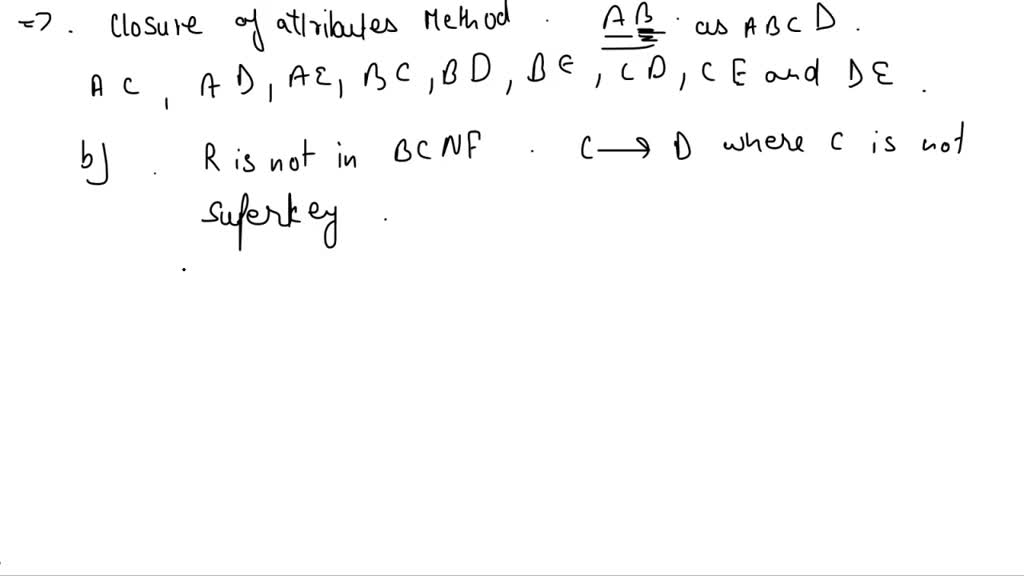 => . Closure of attributes Method . AB . as ABCD .
AC , AD , AE , BC , BD , BE , CD , CE and DE .
b) . R is not in BCNF . C → D where C is not
superkey .